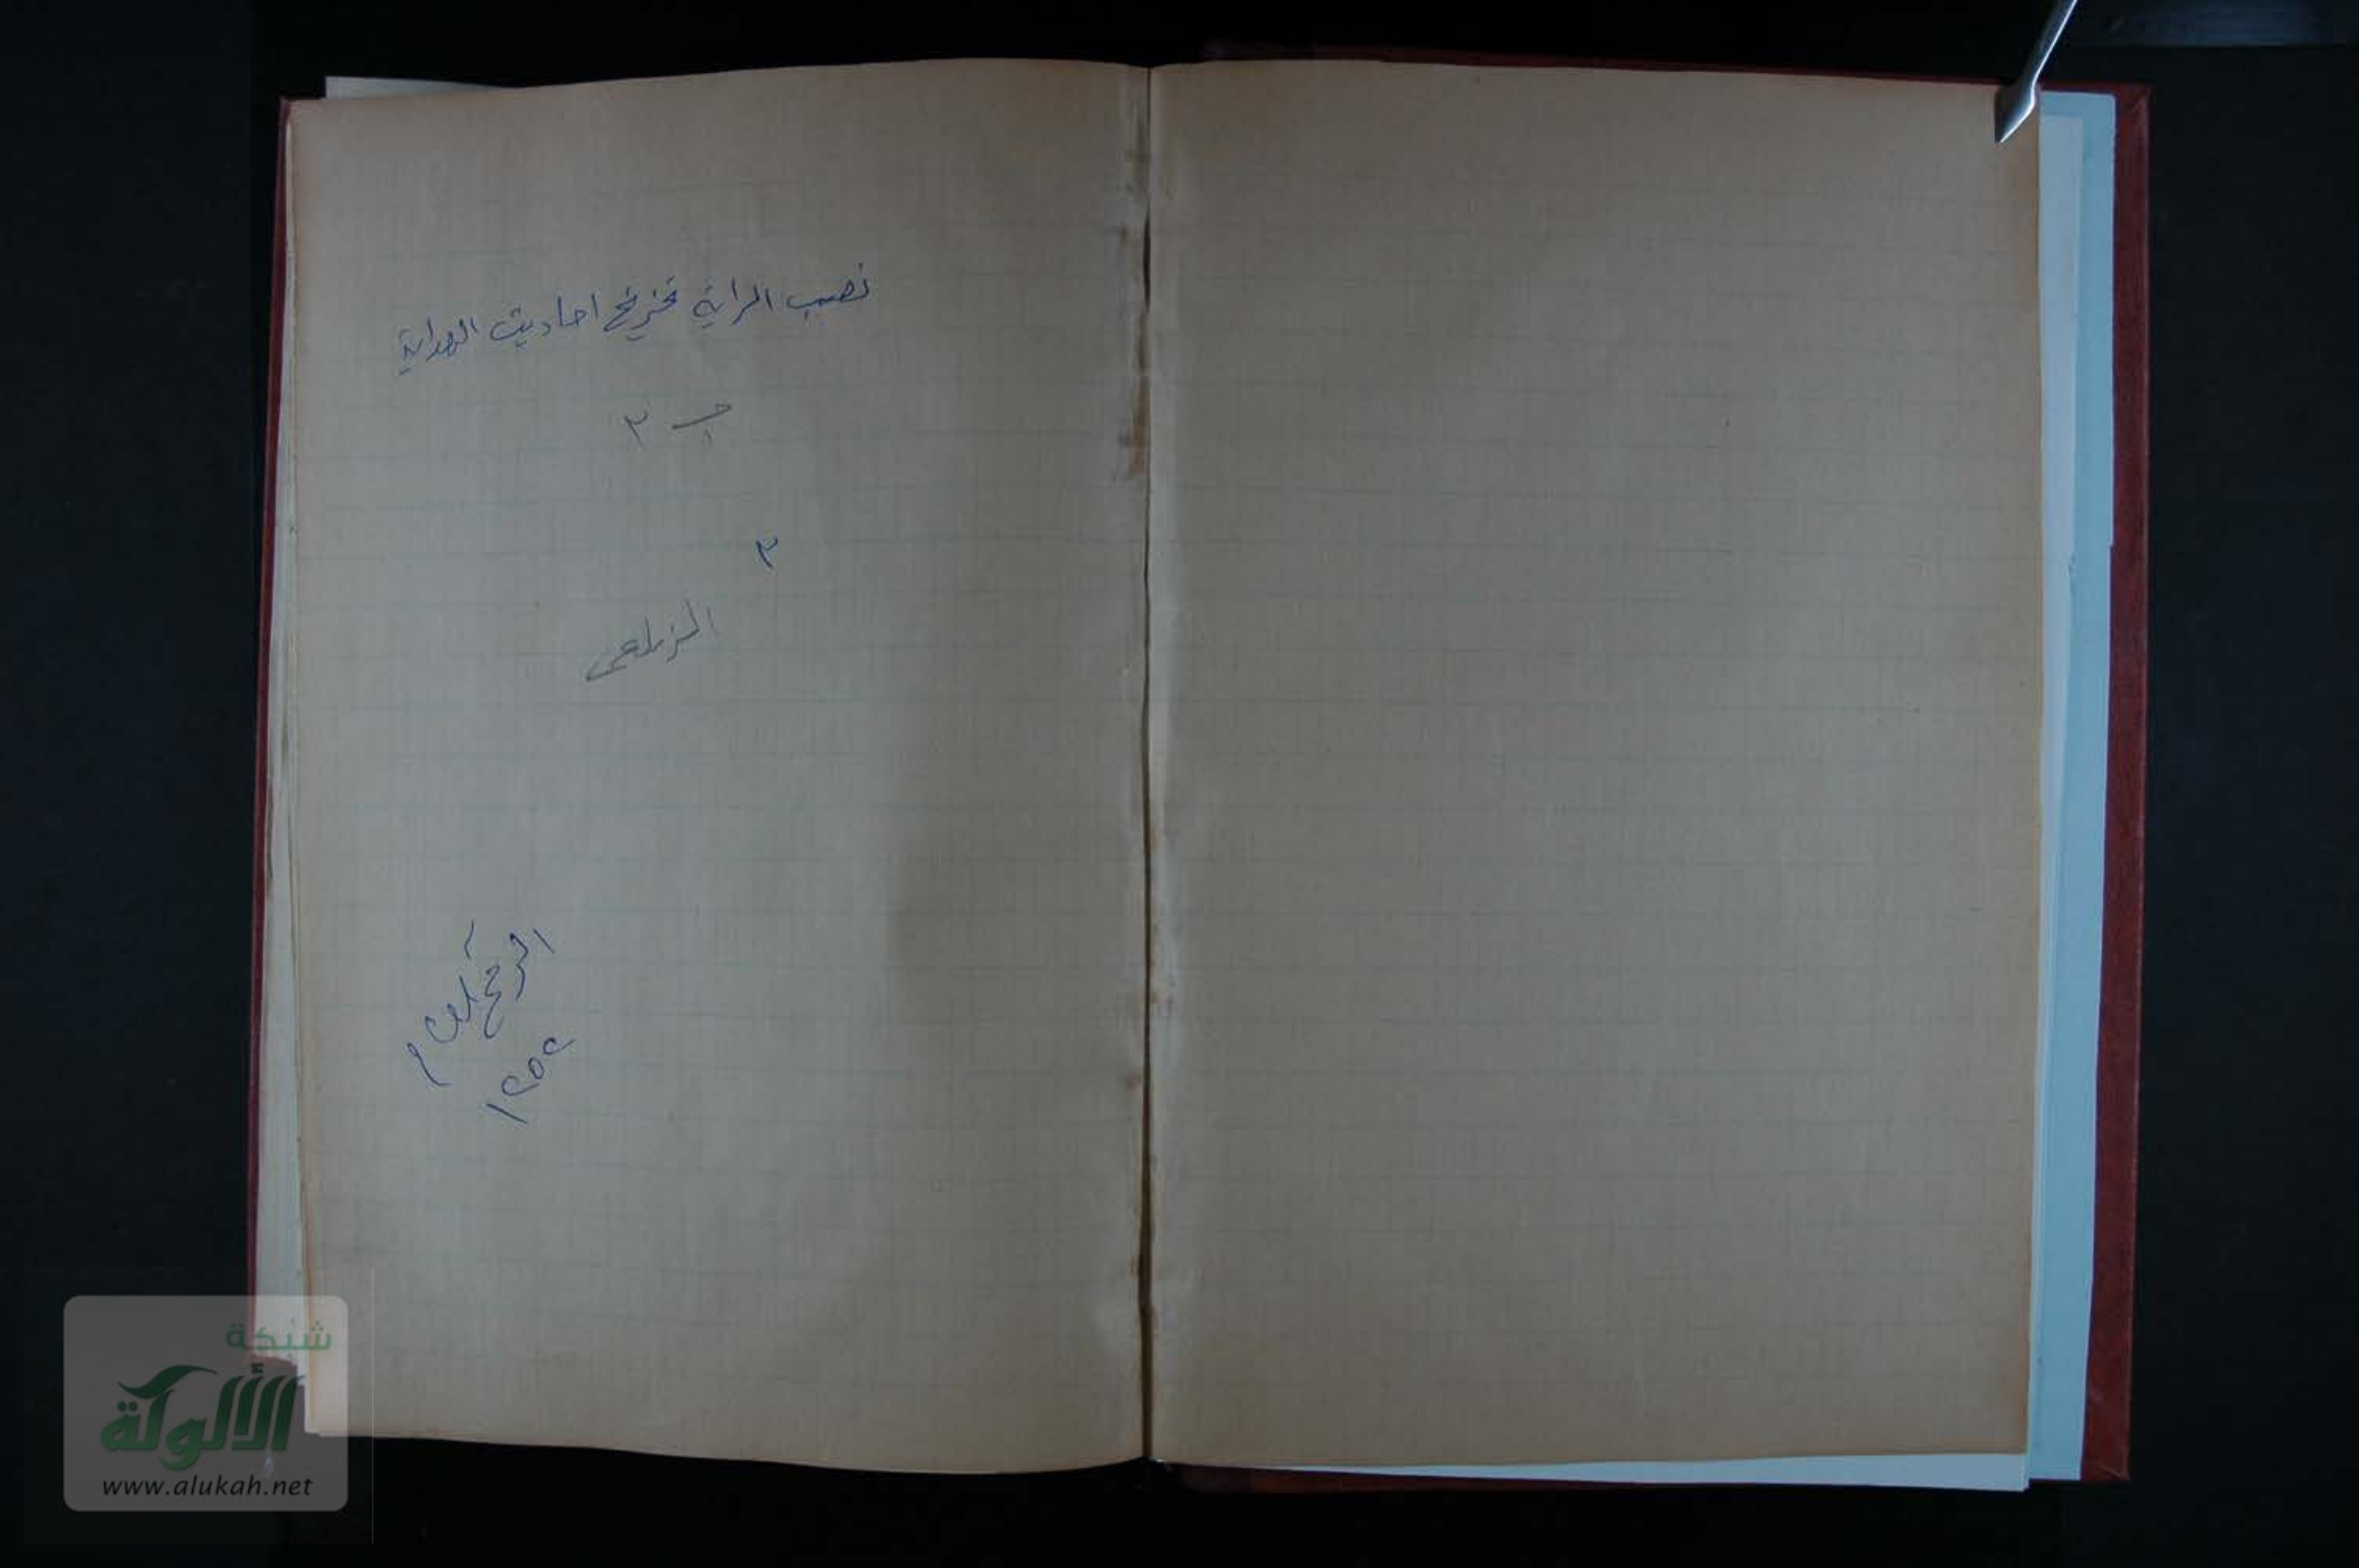 نصب الراية تخريج احاديث الهداية
جـ ٢
٢
الزيلعى
الرقم العام
١٢٥٢
شبكة
الألوكة
www.alukah.net